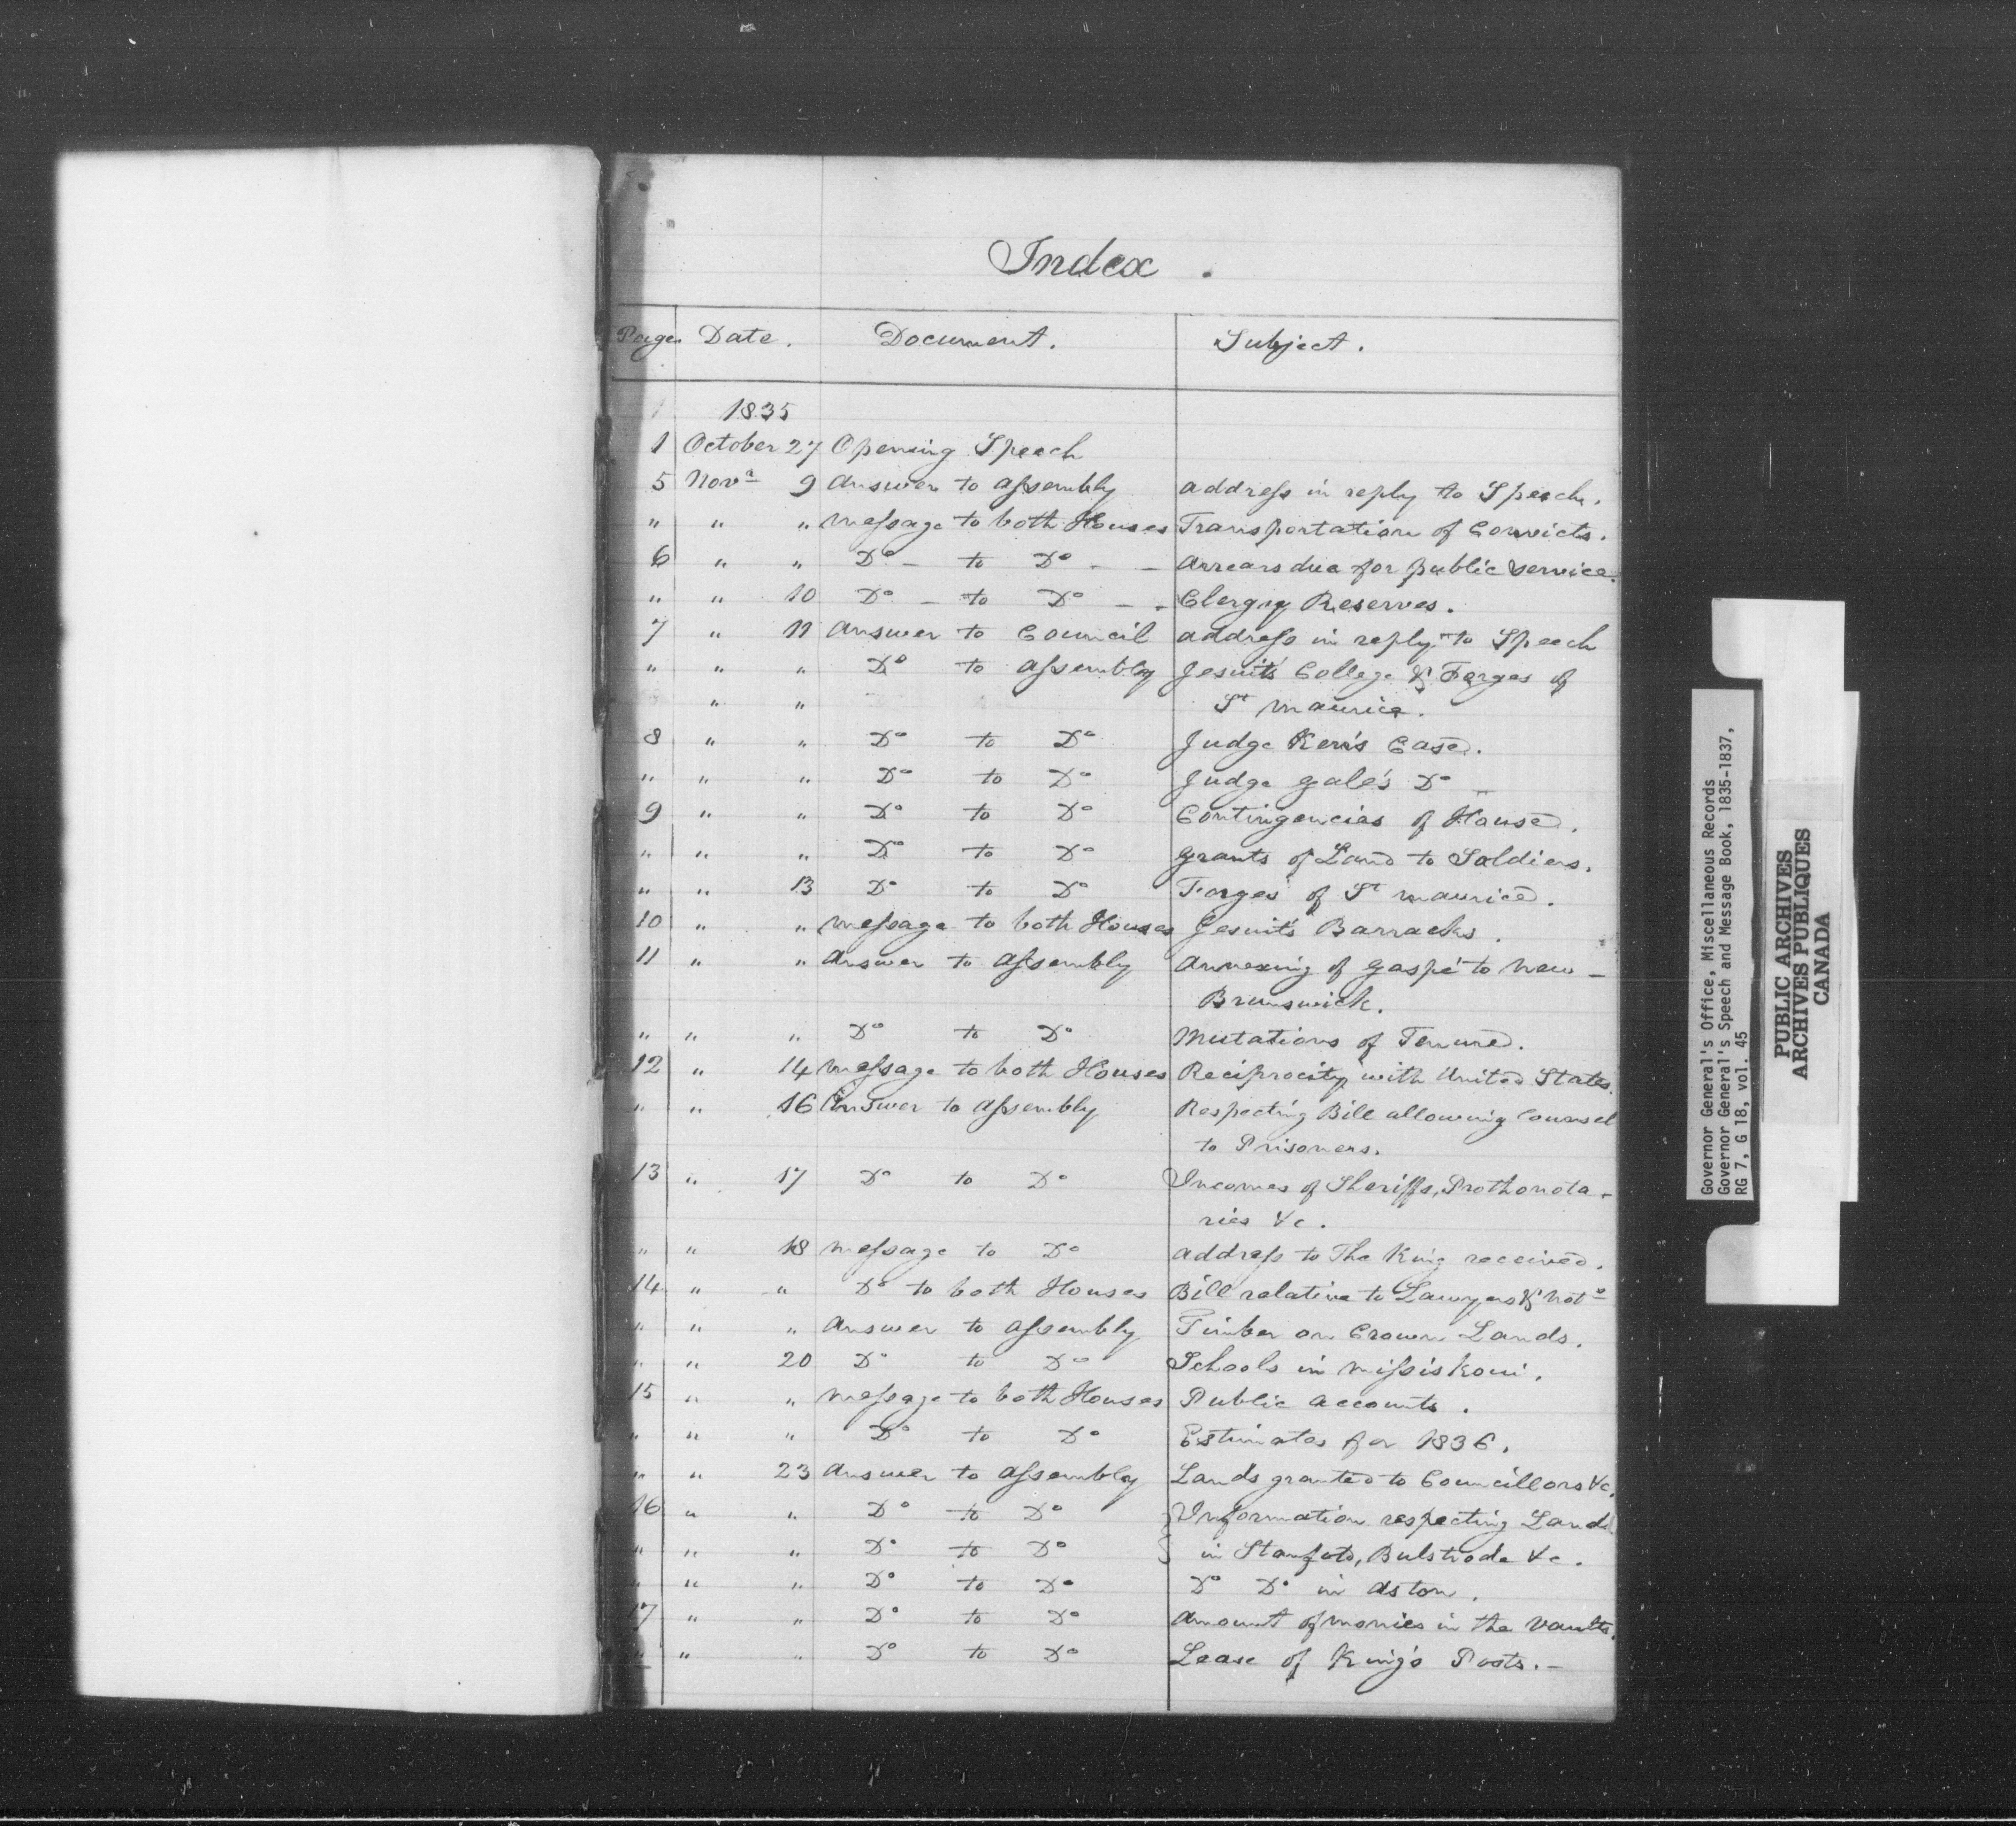 Index.
Page Date. Document. Subject.
1835
1 October 27 Opening Speech
5 Novr 9 Answer to Assembly Address in reply to Speech.
" " " Message to both Houses Transportation of Convicts.
6 " " Do - to Do - - Arrears due for public service.
" " 10 Do - to Do - - Clergy Reserves.
7 " 11 Answer to Council Address in reply to Speech
" " " Do to Assembly Jesuits' College & Forges of
" " St Maurice.
8 " " Do to Do Judge Kerr's Case.
" " " Do to Do Judge Gale's Do
9 " " Do to Do Contingencies of House.
" " " Do to Do Grants of Land to Soldiers.
" " 13 Do to Do Forges of St Maurice.
10 " " Message to both Houses Jesuit's Barracks.
11 " " Answer to Assembly Annexing of Gaspé to New-
Brunswick.
" " " Do to Do Mutations of Tenure.
12 " 14 Message to both Houses Reciprocity with United States.
" " 16 Answer to Assembly Respecting Bill allowing Counsel
to Prisoners.
13 " 17 Do to Do Incomes of Sheriffs, Prothonota-
ries &c.
" " 18 Message to Do Address to The King received.
14 " " Do to both Houses Bill relative to Lawyers & Nots
" " " Answer to Assembly Timber on Crown Lands.
" " 20 Do to Do Schools in Missiskoui.
15 " " Message to both Houses Public Accounts.
" " " Do to Do Estimates for 1836.
" " 23 Answer to Assembly Lands granted to Councillors &c.
16 " " Do to Do } Information respecting Lands
" " " Do to Do } in Stanfold, Bulstrode &c.
" " " Do to Do Do Do in Aston.
17 " " Do to Do Amount of monies in the Vaults.
" " " Do to Do Lease of King's Posts.-
Governor General's Office, Miscellaneous Records
Governor General's Speech and Message Book, 1835-1837,
RG 7, G 18, vol. 45
PUBLIC ARCHIVES
ARCHIVES PUBLIQUES
CANADA